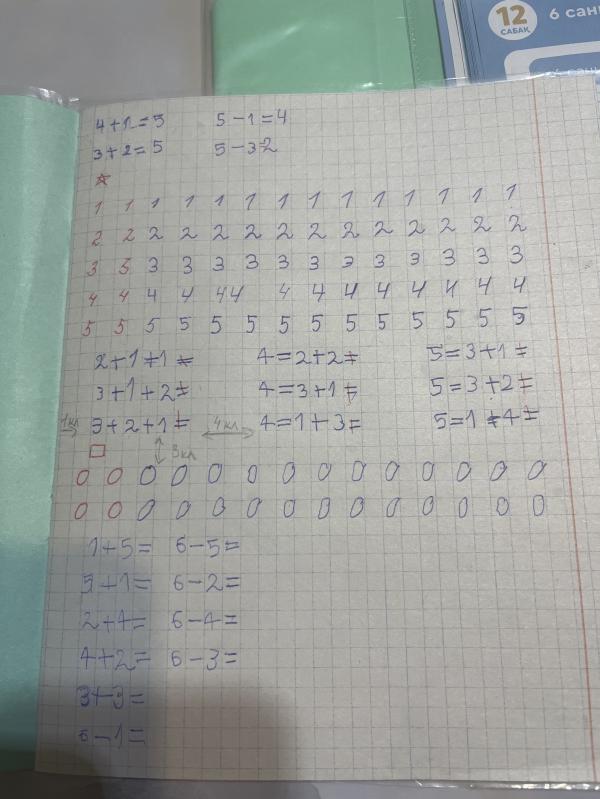 12
САБАҚ
6 сан
4+1=5 5-1=4
3+2=5 5-3=2
1 1 1 1 1 1 1 1 1 1 1 1 1 1
2 2 2 2 2 2 2 2 2 2 2 2 2 2
3 3 3 3 3 3 3 3 3 3 3 3 3 3
4 4 4 4 44 4 4 4 4 4 4 4 4
5 5 5 5 5 5 5 5 5 5 5 5 5 5
2+1+1= 4=2+2= 5=3+1=
3+1+2= 4=3+1= 5=3+2=
1кл 3+2+1= 4кл 4=1+3= 5=1+4=
3кл
0 0 0 0 0 0 0 0 0 0 0 0 0 0
0 0 0 0 0 0 0 0 0 0 0 0 0 0
1+5= 6-5=
5+1= 6-2=
2+4= 6-4=
4+2= 6-3=
3+3=
6-1=